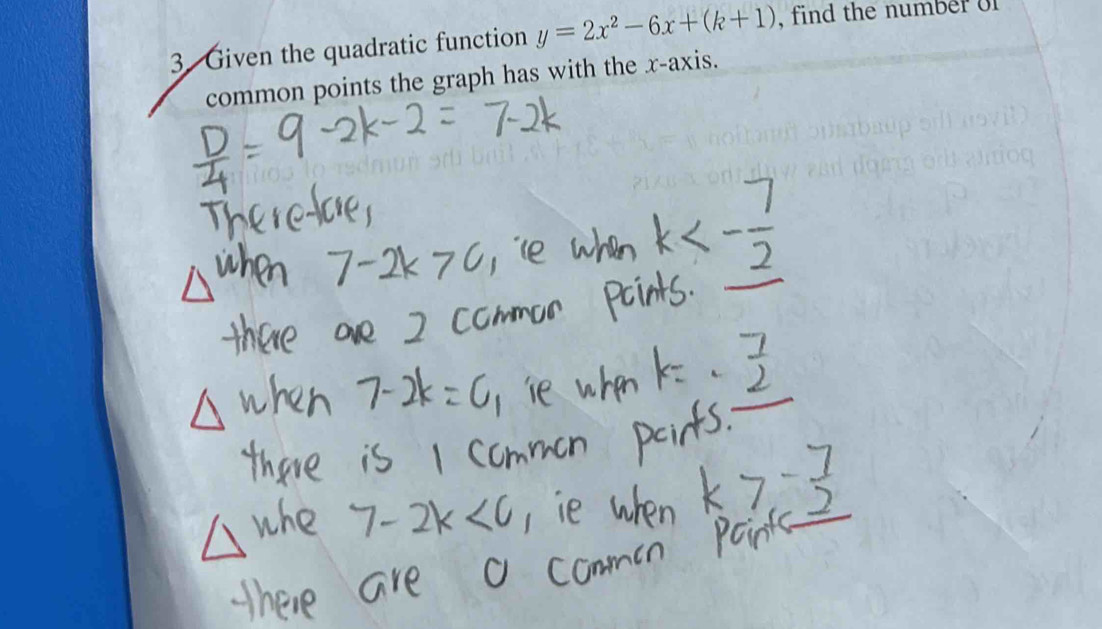 3. Given the quadratic function y = 2x² − 6x + (k + 1), find the number of
common points the graph has with the x-axis.
D/4 = 9 - 2k - 2 = 7-2k
Therefore,
△ when 7-2k > 0, ie when k < -7/2
there are 2 common points.
△ when 7-2k = 0, ie when k = -7/2
there is 1 common points.
△ whe 7-2k < 0, ie when k > -7/2
there are 0 common points